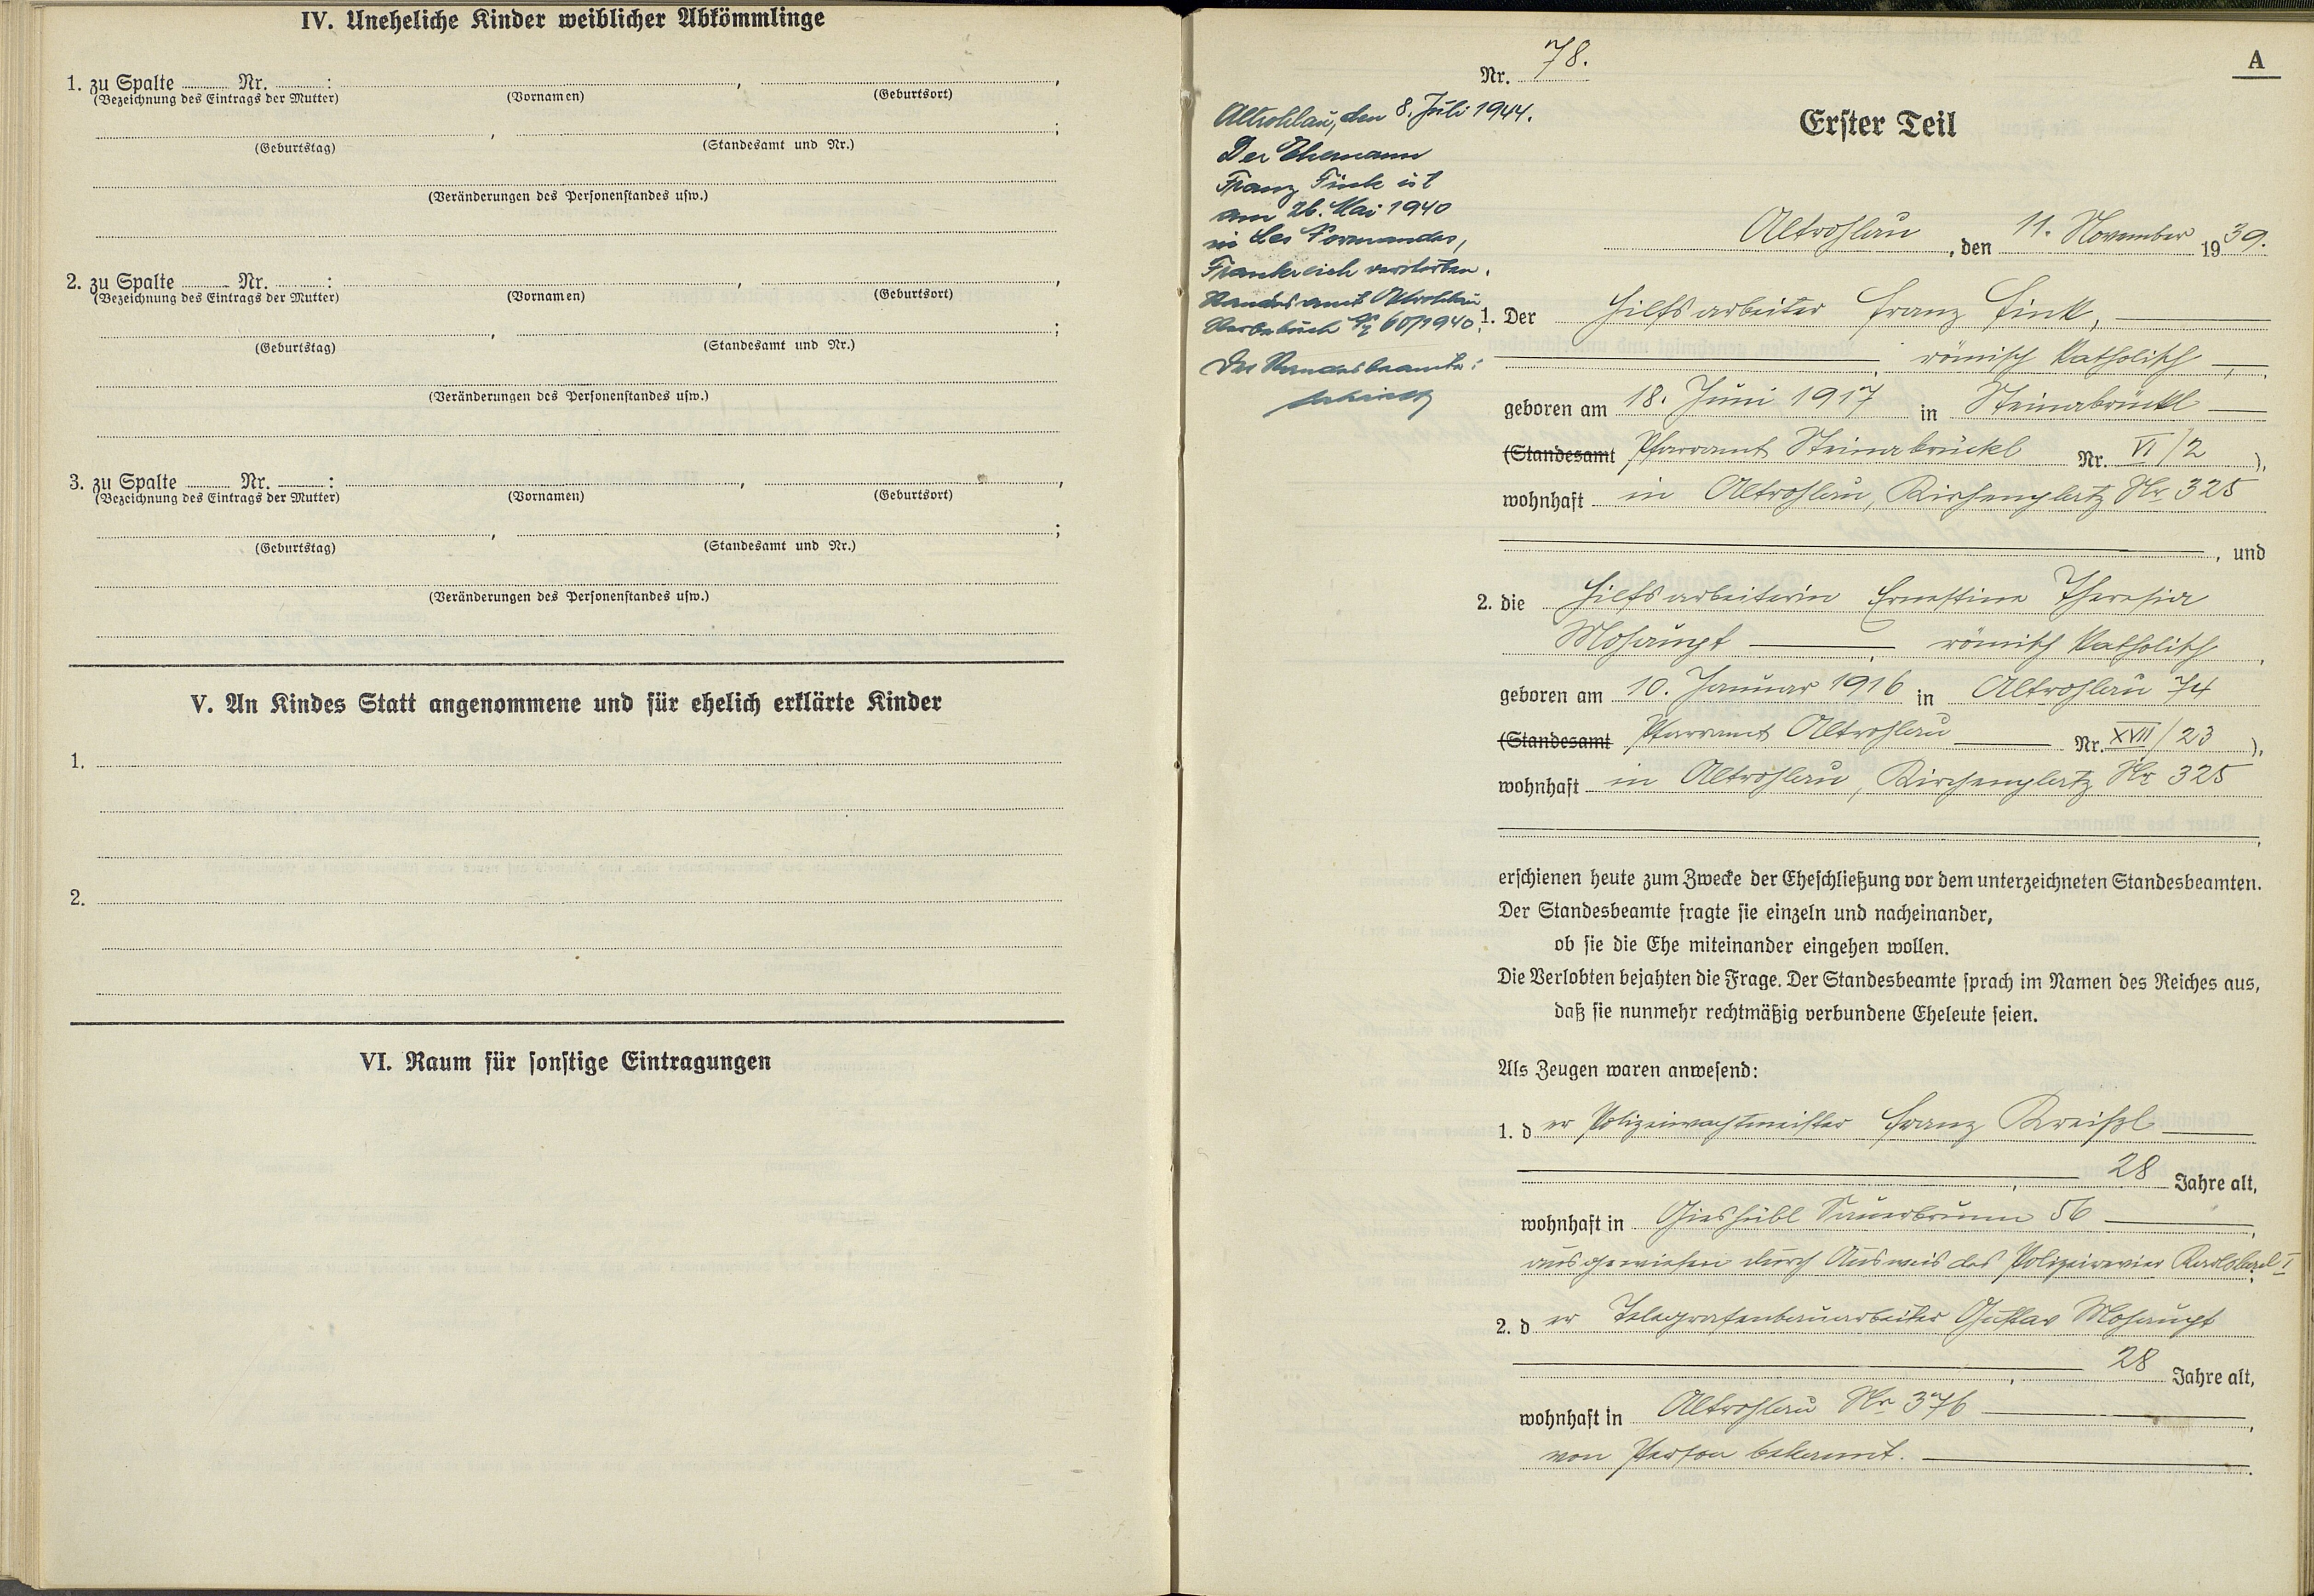 IV. Uneheliche Kinder weiblicher Abkömmlinge
1. zu Spalte Nr. : , ,
(Bezeichnung des Eintrags der Mutter) (Vornamen) (Geburtsort)
, ;
(Geburtstag) (Standesamt und Nr.)
(Veränderungen des Personenstandes usw.)
2. zu Spalte Nr. : , ,
(Bezeichnung des Eintrags der Mutter) (Vornamen) (Geburtsort)
, ;
(Geburtstag) (Standesamt und Nr.)
(Veränderungen des Personenstandes usw.)
3. zu Spalte Nr. : , ,
(Bezeichnung des Eintrags der Mutter) (Vornamen) (Geburtsort)
, ;
(Geburtstag) (Standesamt und Nr.)
(Veränderungen des Personenstandes usw.)
V. An Kindes Statt angenommene und für ehelich erklärte Kinder
1.
2.
VI. Raum für sonstige Eintragungen
A
Nr. 78.
Altrohlau, den 8. Juli 1944.
Der Ehemann
Franz Fink ist
am 26. Mai 1940
in Les
Frankreich verstorben.
Standesamt Altrohlau
Sterbebuch Nr 60/1940.
Der Standesbeamte:
Erster Teil
Altrohlau, den 11. November 1939.
1. Der Hilfsarbeiter Franz Fink,
, römisch katholisch,
geboren am 18. Juni 1917 in Steinabrückl
(Standesamt Pfarramt Steinabrückl Nr. VI/2 ),
wohnhaft in Altrohlau, Kirchenplatz Nr 325
, und
2. die Hilfsarbeiterin Ernestine Theresia
Mohaupt , römisch katholisch,
geboren am 10. Januar 1916 in Altrohlau 74
(Standesamt Pfarramt Altrohlau Nr. XVII/23 ),
wohnhaft in Altrohlau, Kirchenplatz Nr 325
,
erschienen heute zum Zwecke der Eheschließung vor dem unterzeichneten Standesbeamten.
Der Standesbeamte fragte sie einzeln und nacheinander,
ob sie die Ehe miteinander eingehen wollen.
Die Verlobten bejahten die Frage. Der Standesbeamte sprach im Namen des Reiches aus,
daß sie nunmehr rechtmäßig verbundene Eheleute seien.
Als Zeugen waren anwesend:
1. der Polizeiwachtmeister Franz Kreißl
, 28 Jahre alt,
wohnhaft in Gieshübl Sauerbrunn 56 ,
ausgewiesen durch Ausweis des Polizeirevier Karlsbad I
2. der Telegrafenbauarbeiter Gustav Mohaupt
, 28 Jahre alt,
wohnhaft in Altrohlau Nr 376 ,
von Person bekannt.